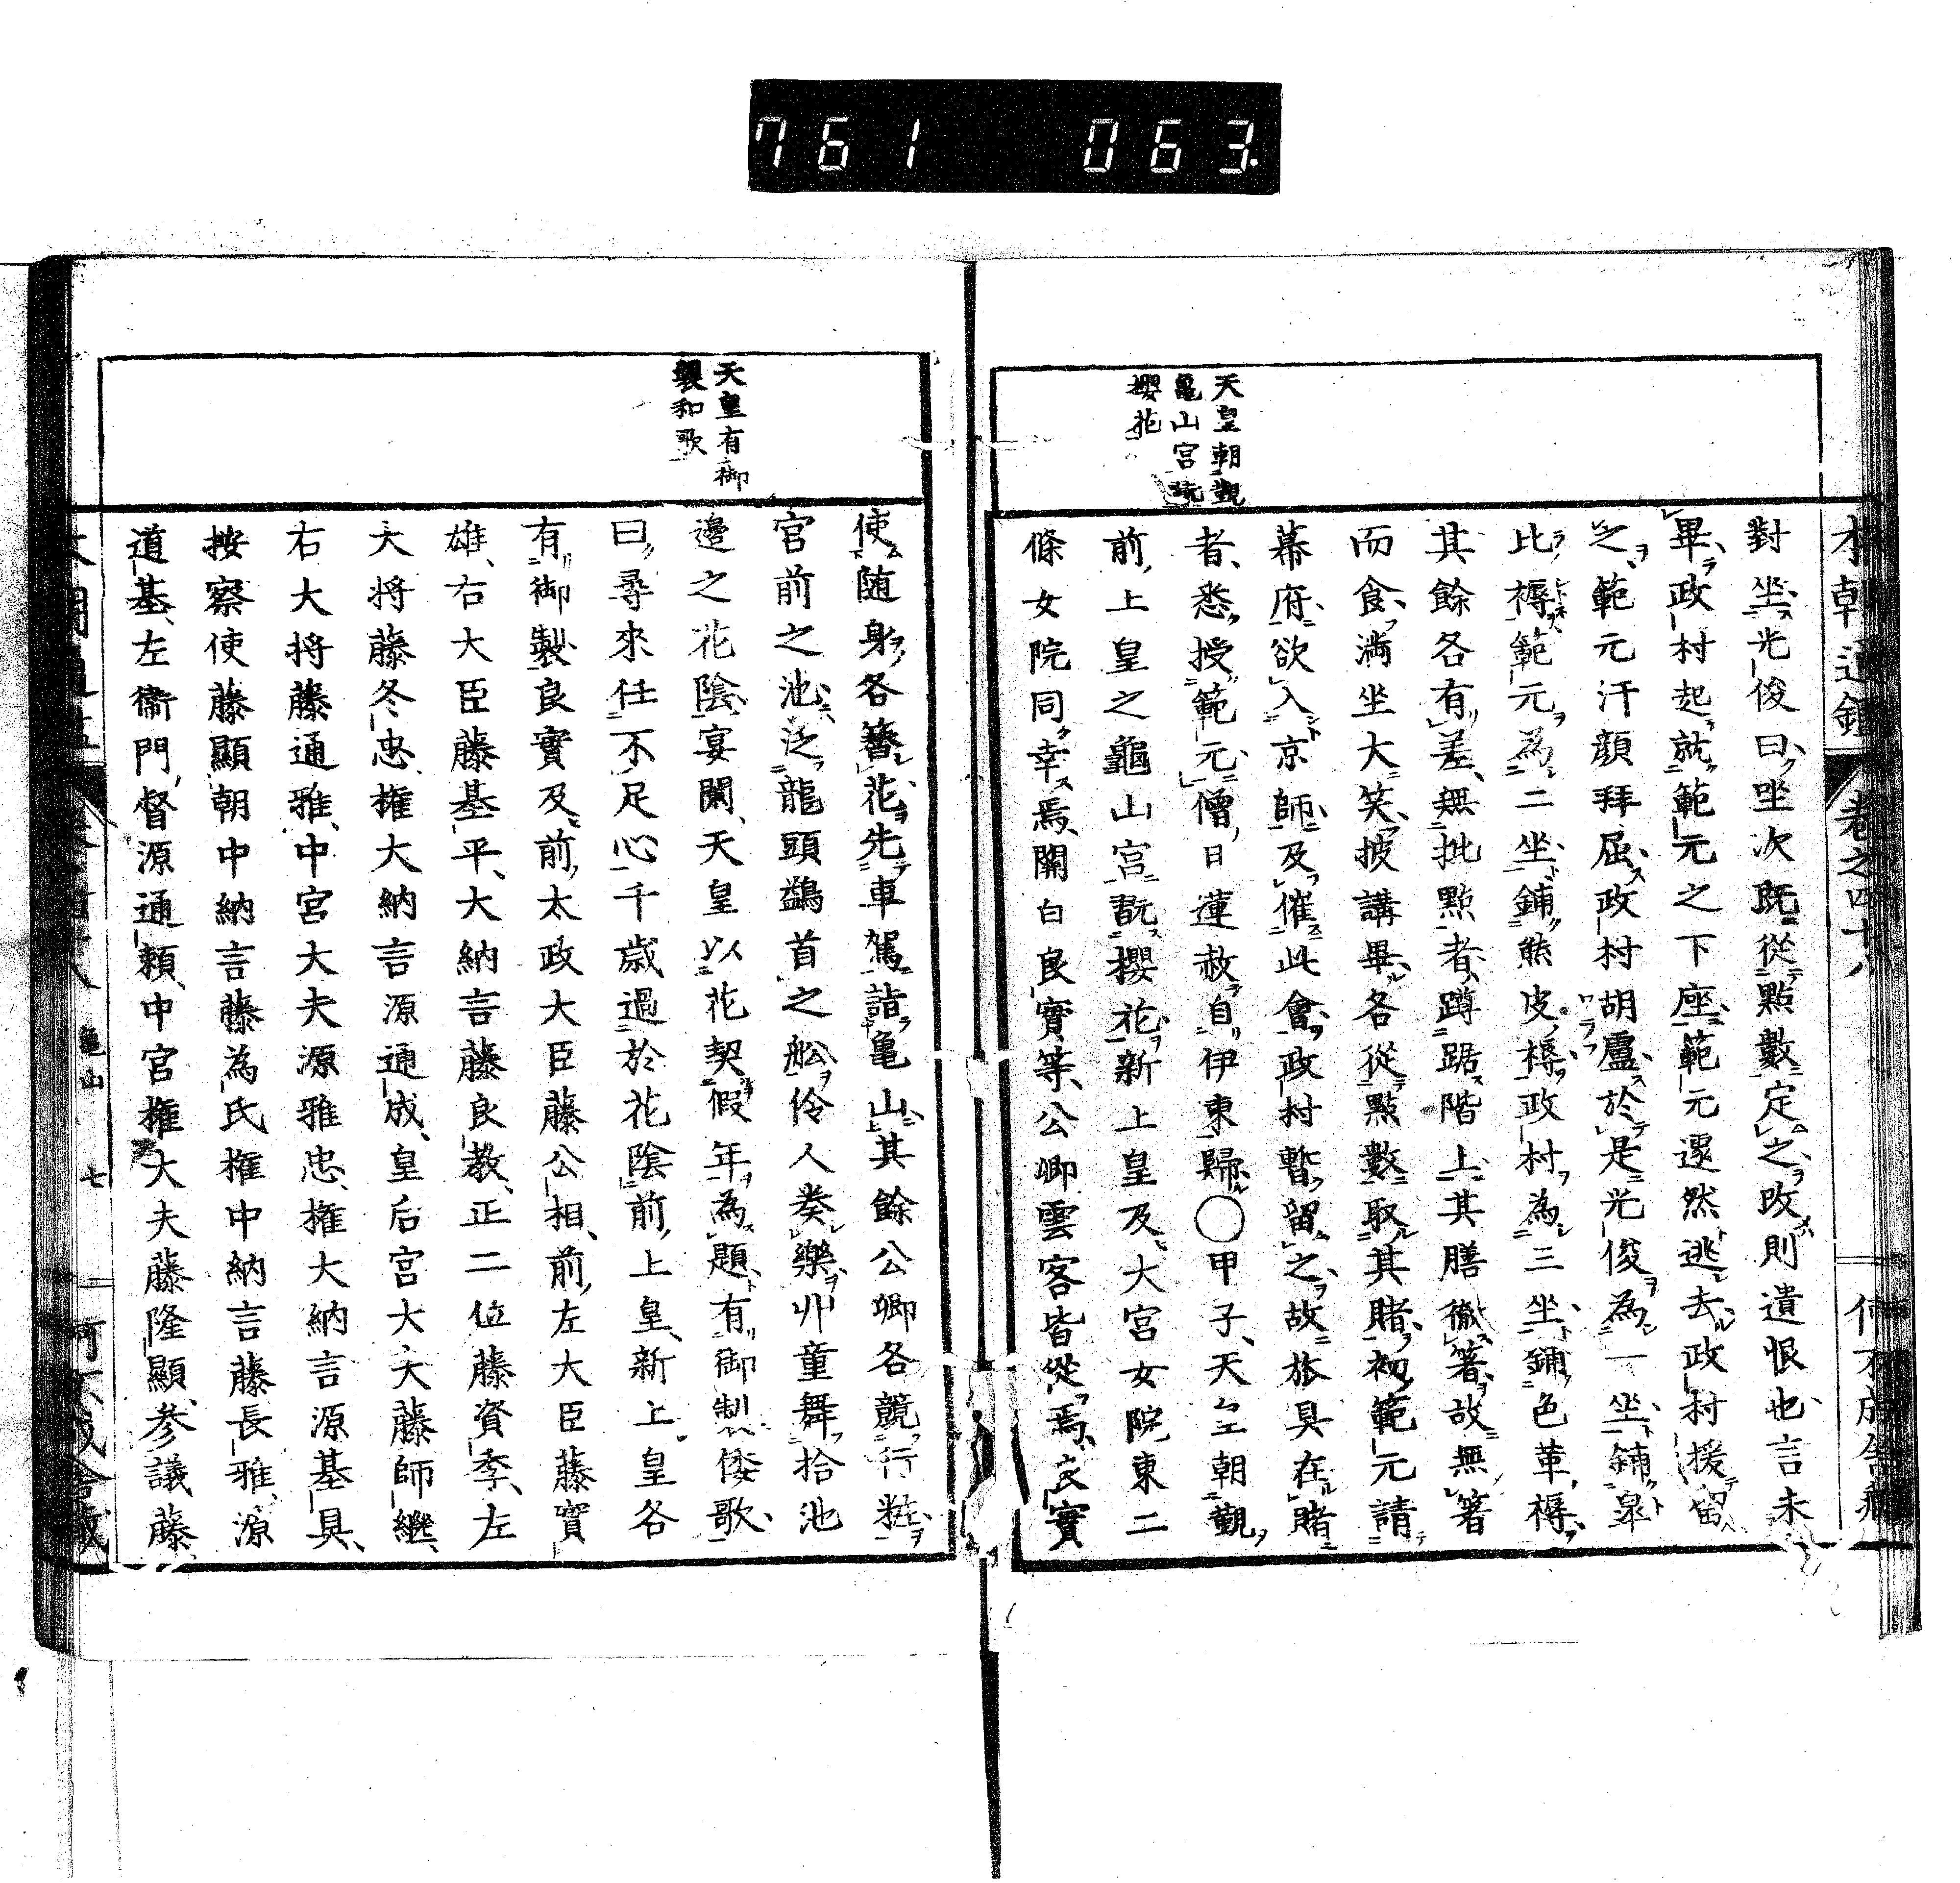 761 063
天皇朝覲
亀山宮翫
櫻花
對坐光俊曰坐次既從點數定之改則遺恨也言未
畢政村起就範元之下座範元還然逃去政村援留
之範元汗顔拜屈政村胡盧於是光俊為一坐鋪皐
比褥範元為二坐鋪熊皮褥政村為三坐鋪色革褥
其餘各有差無批點者蹲踞階上其膳徹箸故無箸
而食満坐大笑披講畢各從點數取其賭初範元請
幕府欲入京師及催此會政村暫留之故旅具在賭
者悉授範元僧日蓮赦自伊東歸○甲子天皇朝覲
前上皇之龜山宮翫櫻花新上皇及大宮女院東二
條女院同幸焉關白良實等公卿雲客皆從焉良實
本朝通鑑 卷之四十八
天皇有御
製和歌
使随身各簪花先車駕詣亀山其餘公卿各競行粧
宮前之池泛龍頭鷁首之舩伶人奏樂丱童舞拾池
邊之花陰宴闌天皇以花契假年為題有御製倭歌
曰尋來任不足心千歳過於花陰前上皇新上皇各
有御製良實及前太政大臣藤公相前左大臣藤實
雄右大臣藤基平大納言藤良教正二位藤資季左
大将藤冬忠権大納言源通成皇后宮大夫藤師継
右大将藤通雅中宮大夫源雅忠権大納言源基具
按察使藤顯朝中納言藤為氏権中納言藤長雅源
道基左衞門督源通頼中宮権大夫藤隆顯參議藤
亀山 七